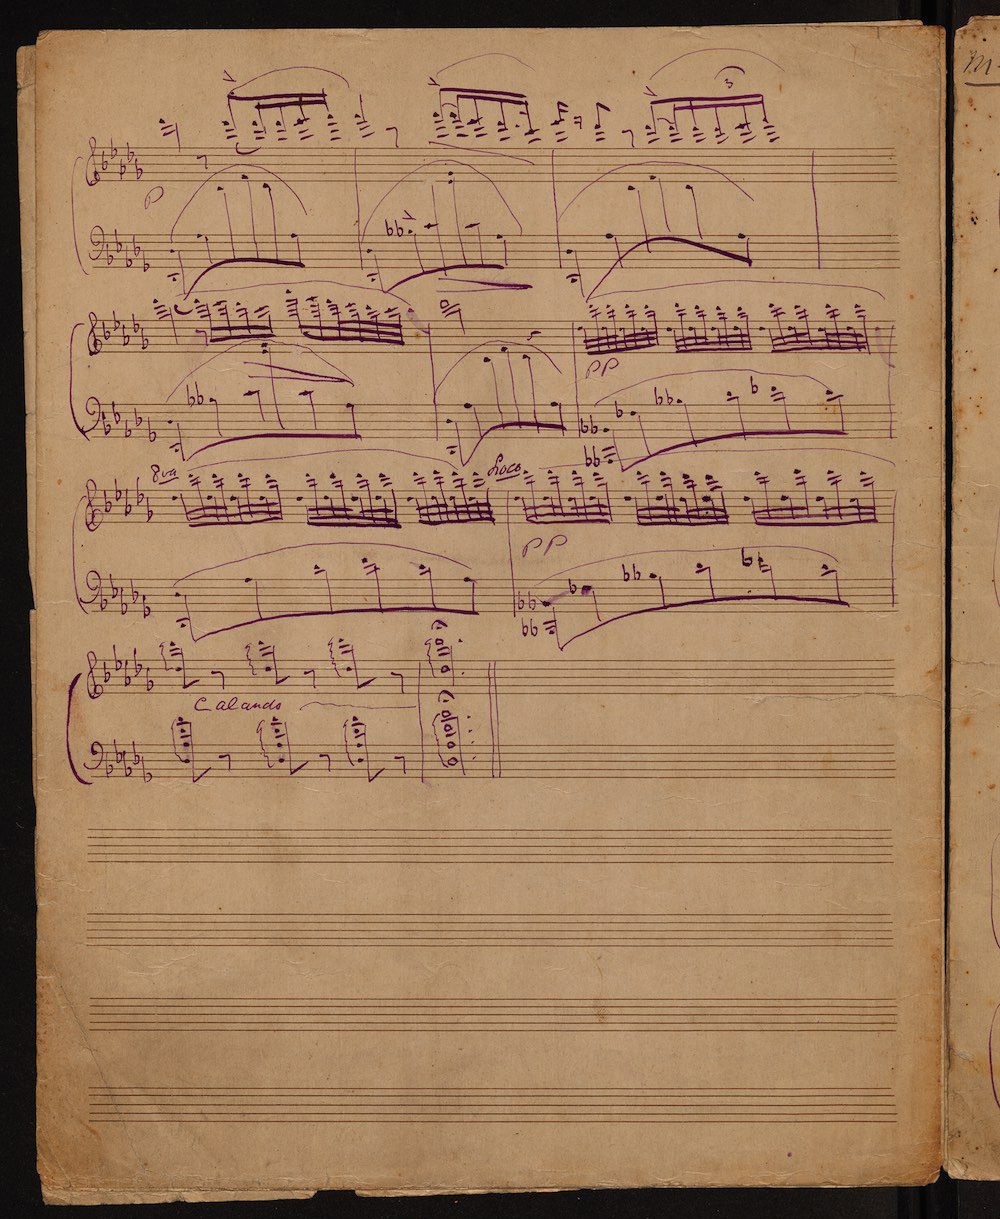 3
P
PP
8va Loco
PP
Calando
m